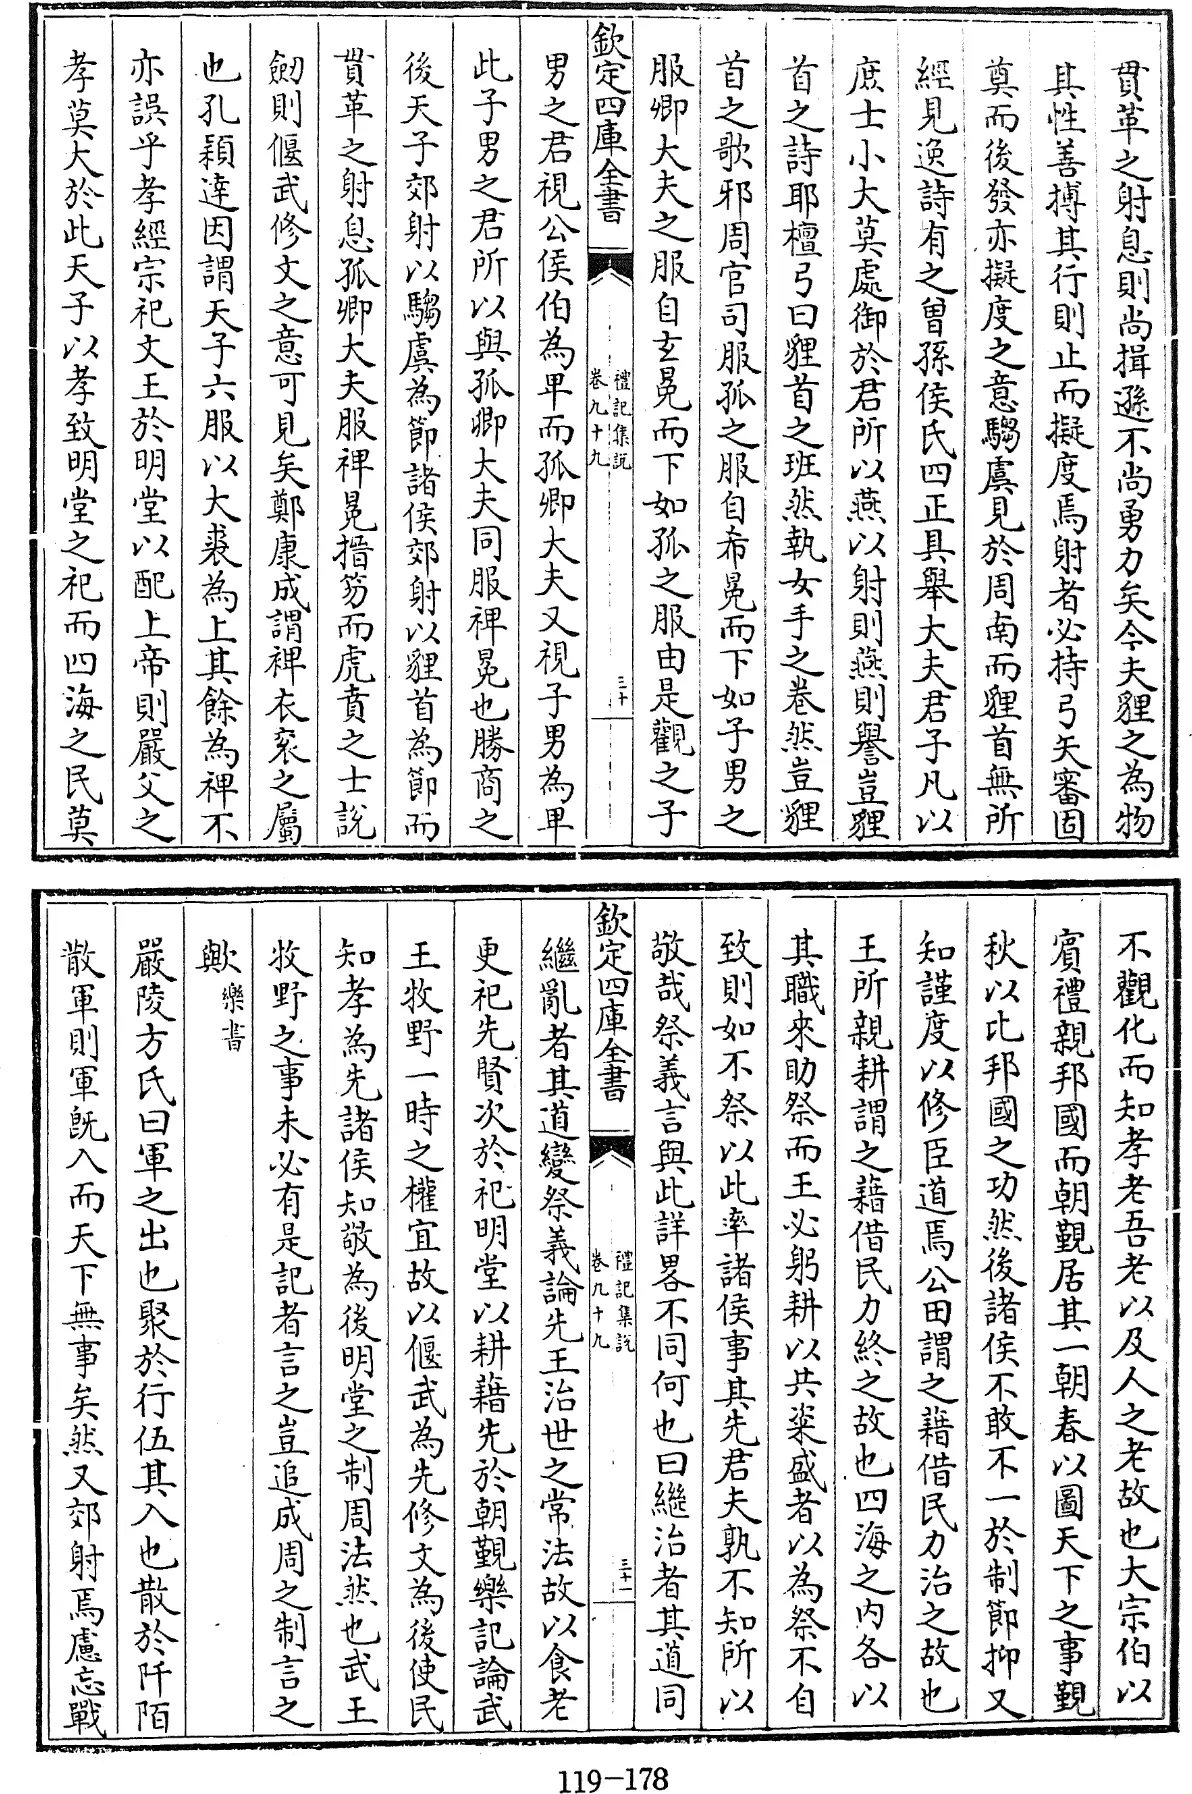 貫革之射息則尚揖遜不尚勇力矣今夫貍之為物
其性善搏其行則止而擬度焉射者必持弓矢審固
奠而後發亦擬度之意騶虞見於周南而貍首無所
經見逸詩有之曽孫侯氏四正具舉大夫君子凡以
庶士小大莫處御於君所以燕以射則燕則譽豈貍
首之詩耶檀弓曰貍首之班然執女手之卷然豈貍
首之歌邪周官司服孤之服自希冕而下如子男之
服卿大夫之服自玄冕而下如孤之服由是觀之子
欽定四庫全書
禮記集説
卷九十九
三十
男之君視公侯伯為卑而孤卿大夫又視子男為卑
此子男之君所以與孤卿大夫同服裨冕也勝商之
後天子郊射以騶虞為節諸侯郊射以貍首為節而
貫革之射息孤卿大夫服裨冕搢笏而虎賁之士説
劒則偃武修文之意可見矣鄭康成謂裨衣衮之屬
也孔穎達因謂天子六服以大裘為上其餘為裨不
亦誤乎孝經宗祀文王於明堂以配上帝則嚴父之
孝莫大於此天子以孝致明堂之祀而四海之民莫
不觀化而知孝老吾老以及人之老故也大宗伯以
賔禮親邦國而朝覲居其一朝春以圖天下之事覲
秋以比邦國之功然後諸侯不敢不一於制節抑又
知謹度以修臣道焉公田謂之藉借民力治之故也
王所親耕謂之藉借民力終之故也四海之内各以
其職來助祭而王必躬耕以共粢盛者以為祭不自
致則如不祭以此率諸侯事其先君夫孰不知所以
敬哉祭義言與此詳畧不同何也曰繼治者其道同
欽定四庫全書
禮記集説
卷九十九
三十一
繼亂者其道變祭義論先王治世之常法故以食老
更祀先賢次於祀明堂以耕藉先於朝覲樂記論武
王牧野一時之權宜故以偃武為先修文為後使民
知孝為先諸侯知敬為後明堂之制周法然也武王
牧野之事未必有是記者言之豈追成周之制言之
歟樂書
嚴陵方氏曰軍之出也聚於行伍其入也散於阡陌
散軍則軍旣入而天下無事矣然又郊射焉慮忘戰
119-178